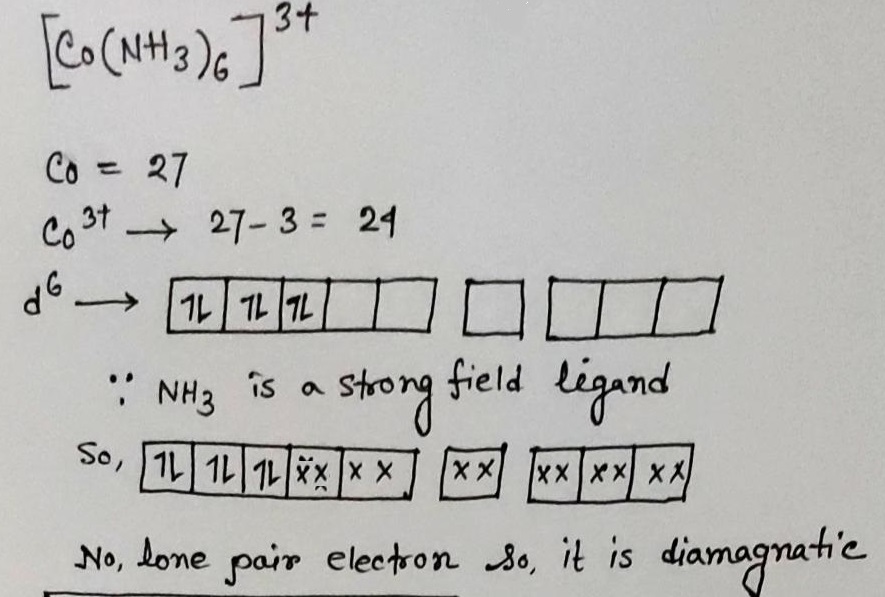 [Co(NH3)6]3+
Co = 27
Co3+ → 27-3 = 24
d6 → 1L 1L 1L
∵ NH3 is a strong field ligand
So, 1L 1L 1L xx xx xx xx xx xx
No, lone pair electron so, it is diamagnatic